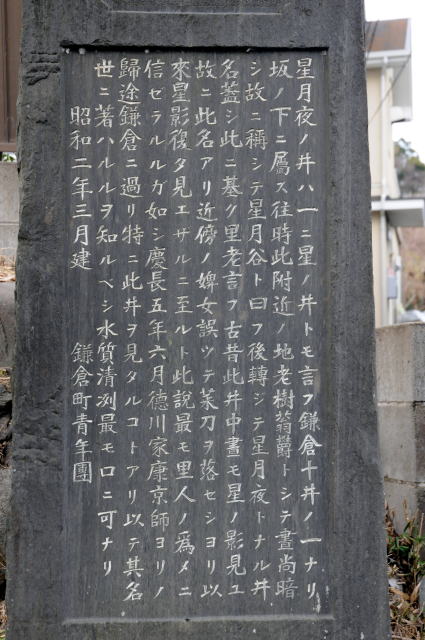 星月夜ノ井ハ一ニ星ノ井トモ言フ鎌倉十井ノ一ナリ
坂ノ下ニ屬ス往時此附近ノ地老樹蓊鬱トシテ晝尚暗
シ故ニ稱シテ星月谷ト曰フ後轉ジテ星月夜トナル井
名蓋シ此ニ基ク里老言フ古昔此井中晝モ星ノ影見ユ
故ニ此名アリ近傍ノ婢女誤ツテ菜刀ヲ落セシヨリ以
來星影復タ見エサルニ至ルト此說最モ里人ノ爲メニ
信ゼラルルガ如シ慶長五年六月德川家康京師ヨリノ
歸途鎌倉ニ過リ特ニ此井ヲ見タルコトアリ以テ其名
世ニ著ハルルヲ知ルベシ水質清冽最モ口ニ可ナリ
昭和二年三月建 鎌倉町青年團